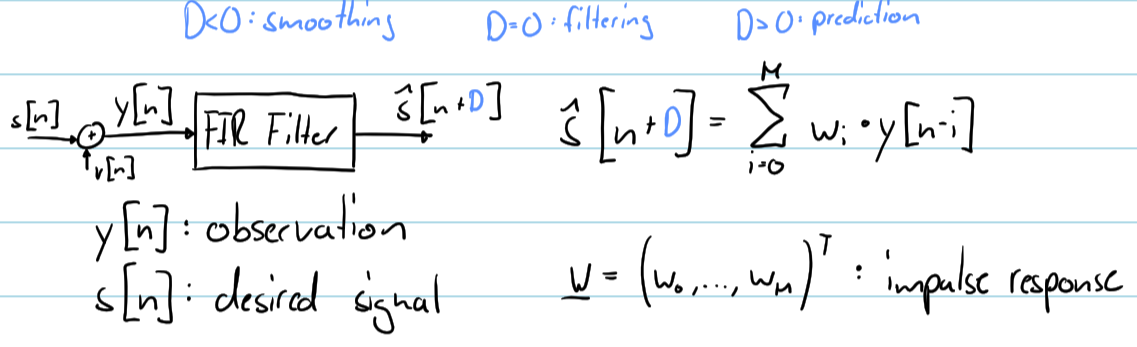 D<0: smoothing D=0: filtering D>0: prediction
s[n] y[n] FIR Filter ŝ[n+D] ŝ[n+D] = ∑_{i=0}^{M} w_i · y[n-i]
v[n]
y[n]: observation
s[n]: desired signal w = (w_0,..., w_M)^T : impulse response